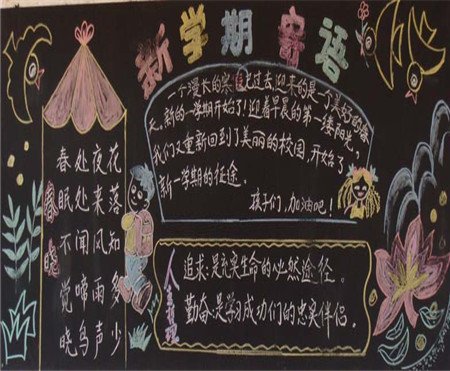 新学期寄语
春晓
春眠不觉晓
处处闻啼鸟
夜来风雨声
花落知多少
一个漫长的寒假已过去,迎来的是一个美好的春
天。新的一学期开始了!迎着早晨的第一缕阳光,
我们又重新回到了美丽的校园,开始了
新一学期的征途。
孩子们,加油吧!
人生
追求:是充实生命的必然途径。
勤奋:是学习成功们的忠实伴侣。